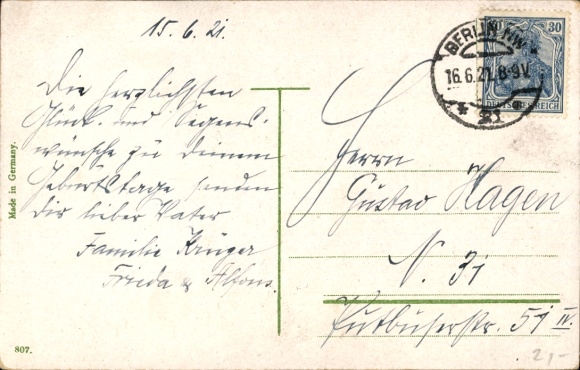 15.6.21.
Die herzlichsten
Glück- und Segens-
wünsche zu Deinem
Geburtstage senden
dir lieber Vater
Familie Krüger
Frieda & Alfons.
Made in Germany.
807.
BERLIN NW
16.6.21.8-9V.
* 21
30
DEUTSCHES REICH
Herrn
Gustav Hagen
N. 31
Putbuserstr. 51 IV.
2,-